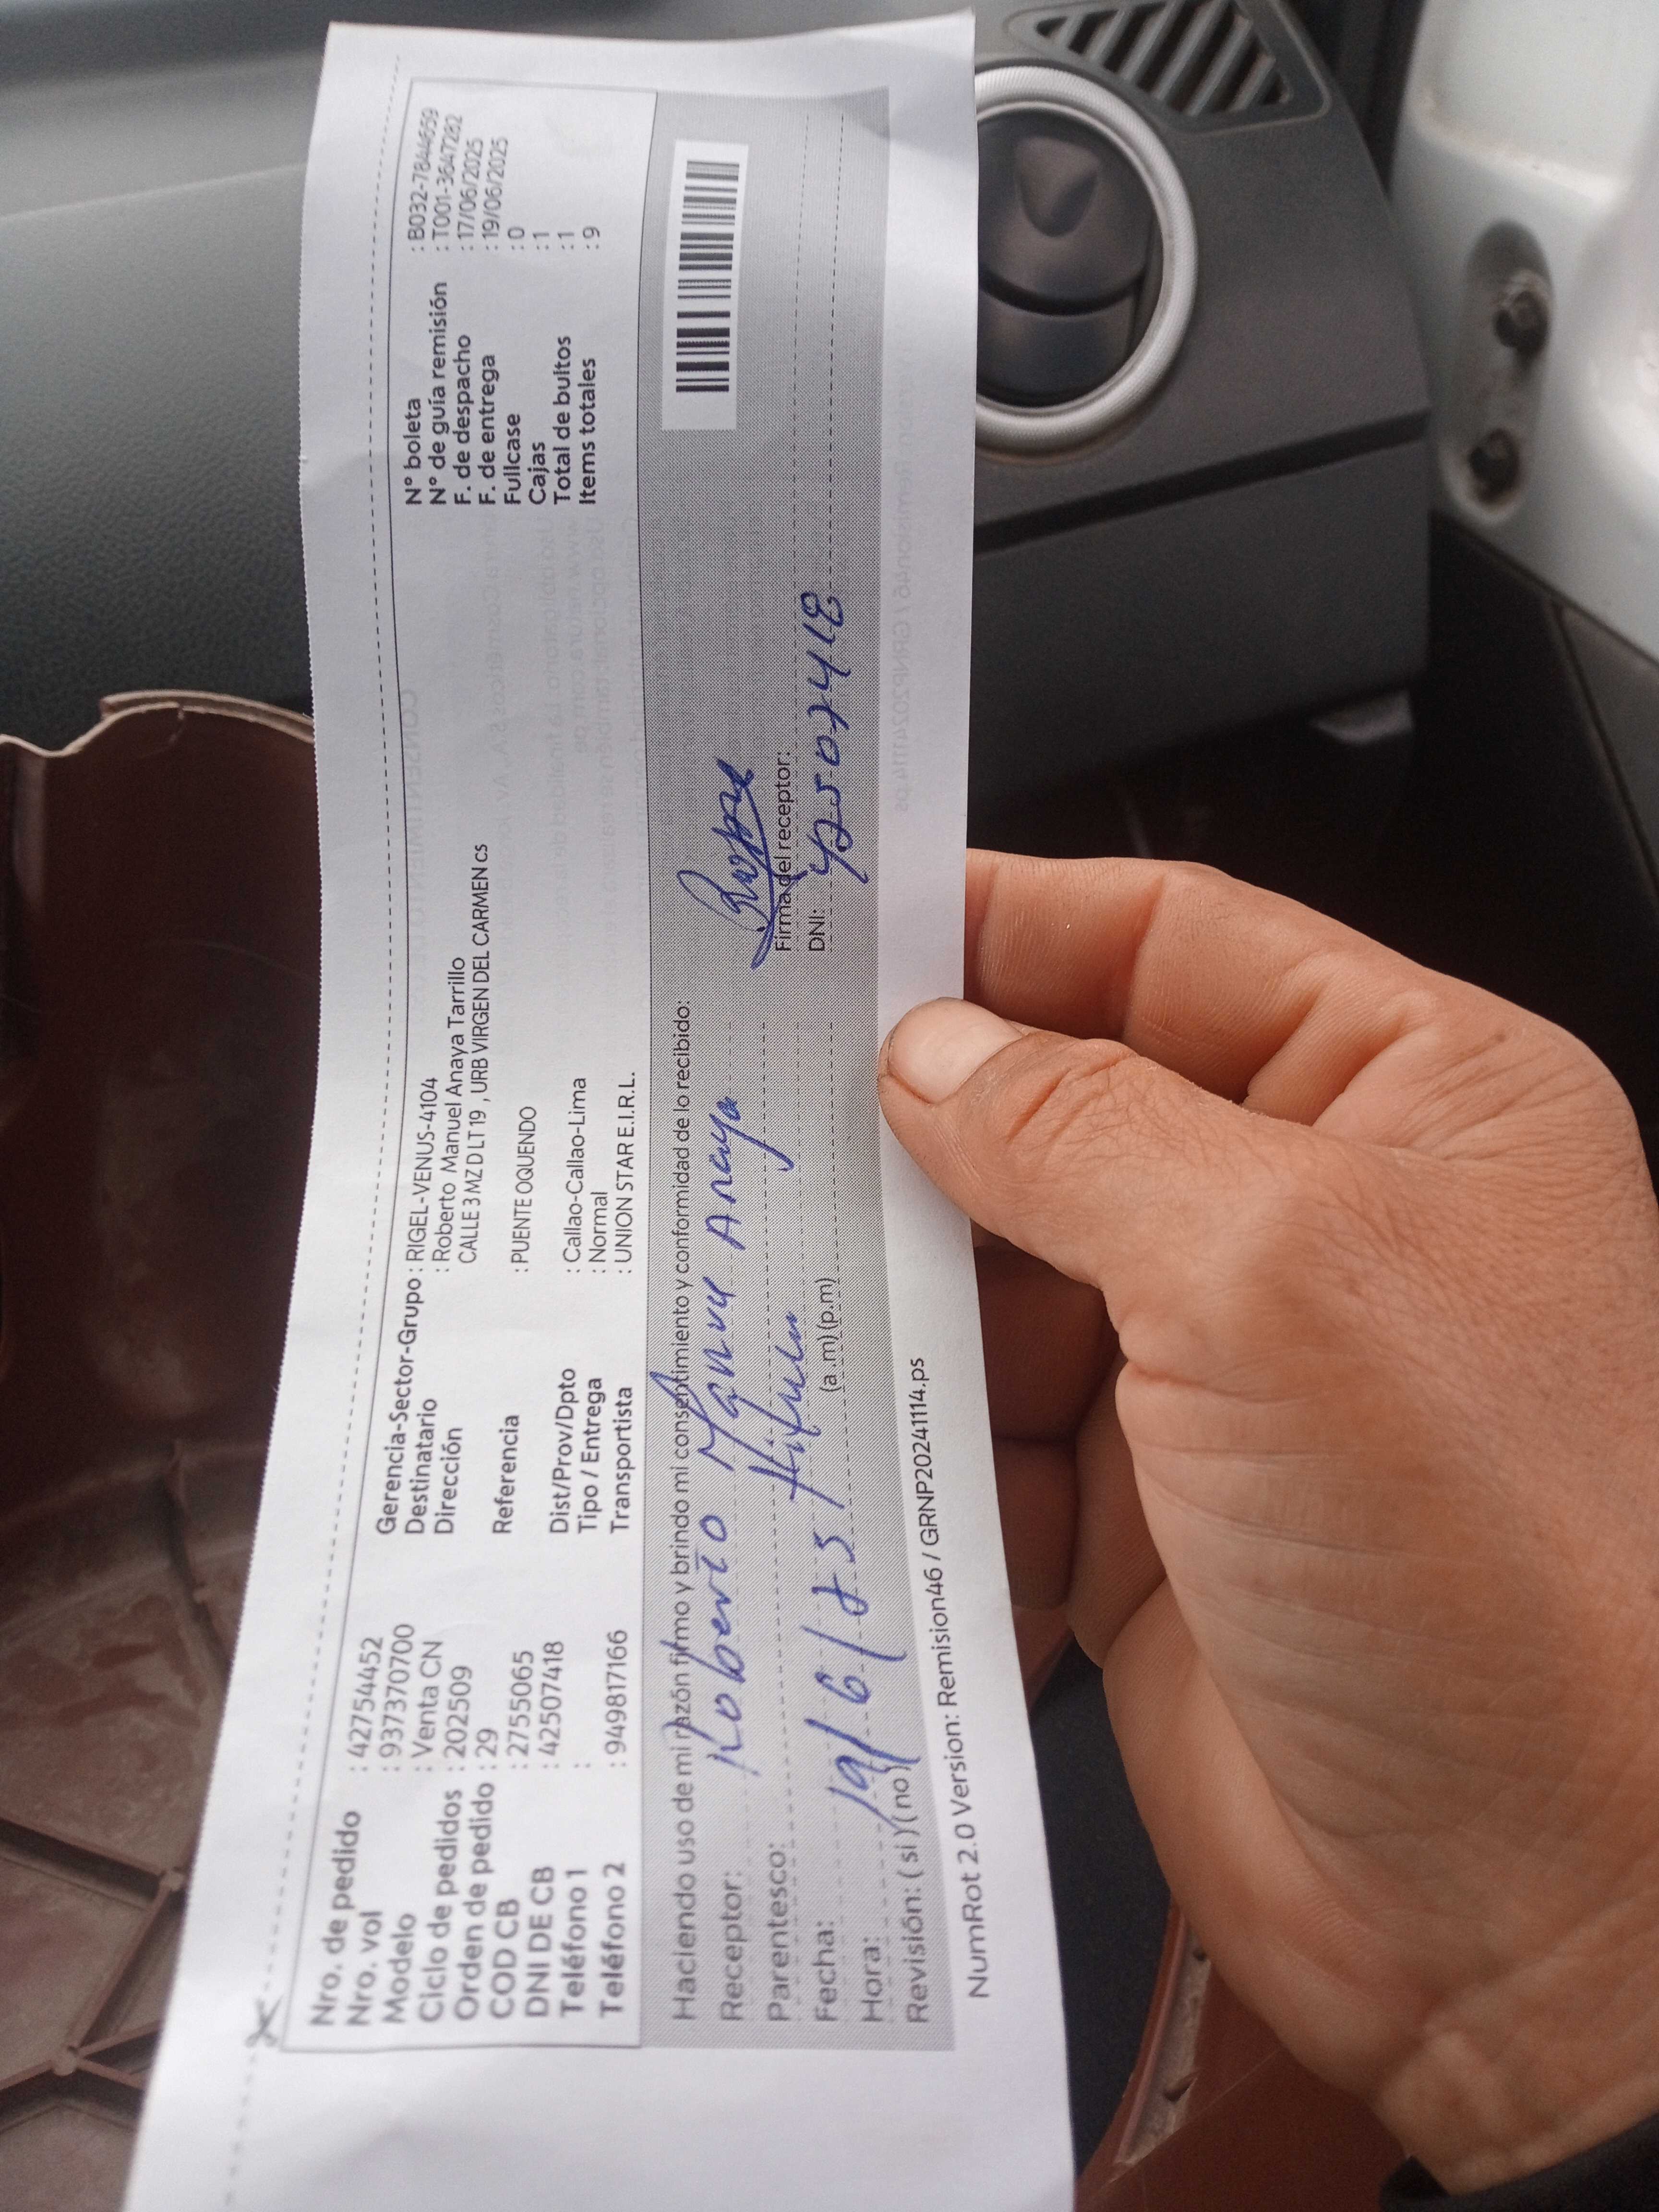 Nro. de pedido : 42754452
Nro. vol : 937370700
Modelo : Venta CN
Ciclo de pedidos : 202509
Orden de pedido : 29
COD CB : 2755065
DNI DE CB : 42507418
Teléfono 1 :
Teléfono 2 : 949817166
Gerencia-Sector-Grupo : RIGEL-VENUS-4104
Destinatario : Roberto Manuel Anaya Tarrillo
Dirección CALLE 3 MZ D LT19 , URB VIRGEN DEL CARMEN cs
Referencia : PUENTE OQUENDO
Dist/Prov/Dpto : Callao-Callao-Lima
Tipo / Entrega : Normal
Transportista : UNION STAR E.I.R.L.
N° boleta : B032-7844659
N° de guía remisión : T001-3647282
F. de despacho : 17/06/2025
F. de entrega : 19/06/2025
Fullcase : 0
Cajas : 1
Total de bultos : 1
Items totales : 9
Haciendo uso de mi razón firmo y brindo mi consentimiento y conformidad de lo recibido:
Receptor: Roberto Manuel Anaya
Parentesco:
Fecha: 19/6/25
Hora: (a.m) (p.m)
Revisión: ( si ) ( no )
Firma del receptor:
DNI: 42507418
NumRot 2.0 Version: Remision46 / GRNP20241114.ps